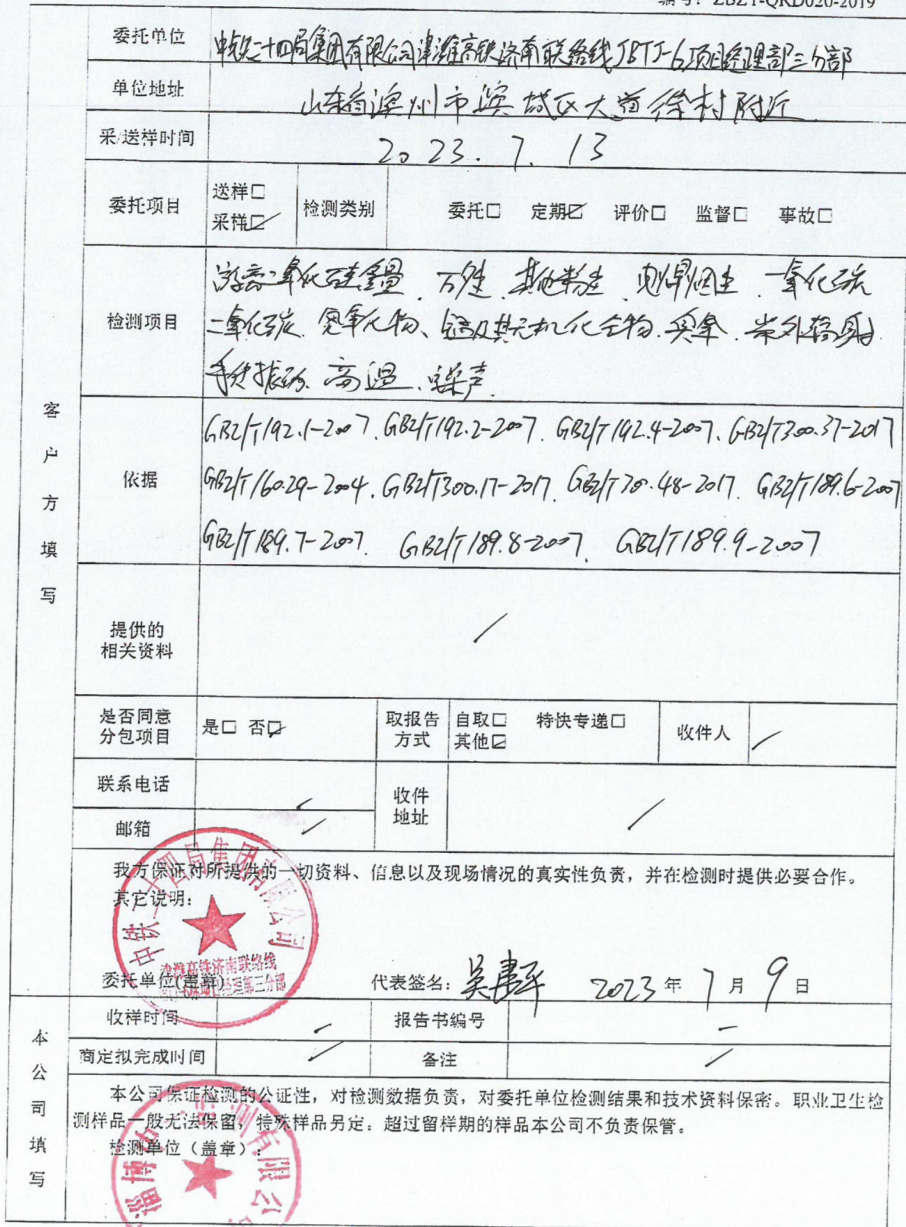 编号: ZBZY-QRD020-2019
委托单位 中铁二十四局集团有限公司津潍高铁济南联络线JBTJ-6项目经理部三分部
单位地址 山东省滨州市滨城区大道徐村附近
采/送样时间 2023.7.13
委托项目 送样□ 采样☑ 检测类别 委托□ 定期☑ 评价□ 监督□ 事故□
检测项目 游离二氧化硅含量、万尘、其他粉尘、电焊烟尘、一氧化碳
二氧化碳、氮氧化物、锰及其无机化合物、臭氧、紫外辐射
手传振动、高温、噪声
客户方填写
依据 GBZ/T192.1-2007、GBZ/T192.2-2007、GBZ/T192.4-2007、GBZ/T300.37-2017
GBZ/T160.29-2004、GBZ/T300.17-2017、GBZ/T300.48-2017、GBZ/T189.6-2007
GBZ/T189.7-2007、GBZ/T189.8-2007、GBZ/T189.9-2007
提供的相关资料 /
是否同意分包项目 是□ 否☑ 取报告方式 自取□ 特快专递□ 其他☑ 收件人 /
联系电话 / 收件地址 /
邮箱 /
我方保证对所提供的一切资料、信息以及现场情况的真实性负责，并在检测时提供必要合作。
其它说明：
中铁二十四局集团有限公司
津潍高铁济南联络线
项目经理部三分部
委托单位(盖章) 代表签名： 2023年7月9日
收样时间 / 报告书编号 /
商定拟完成时间 / 备注 /
本公司填写
本公司保证检测的公证性，对检测数据负责，对委托单位检测结果和技术资料保密。职业卫生检
测样品一般无法保留，特殊样品另定。超过留样期的样品本公司不负责保管。
检测单位（盖章）：